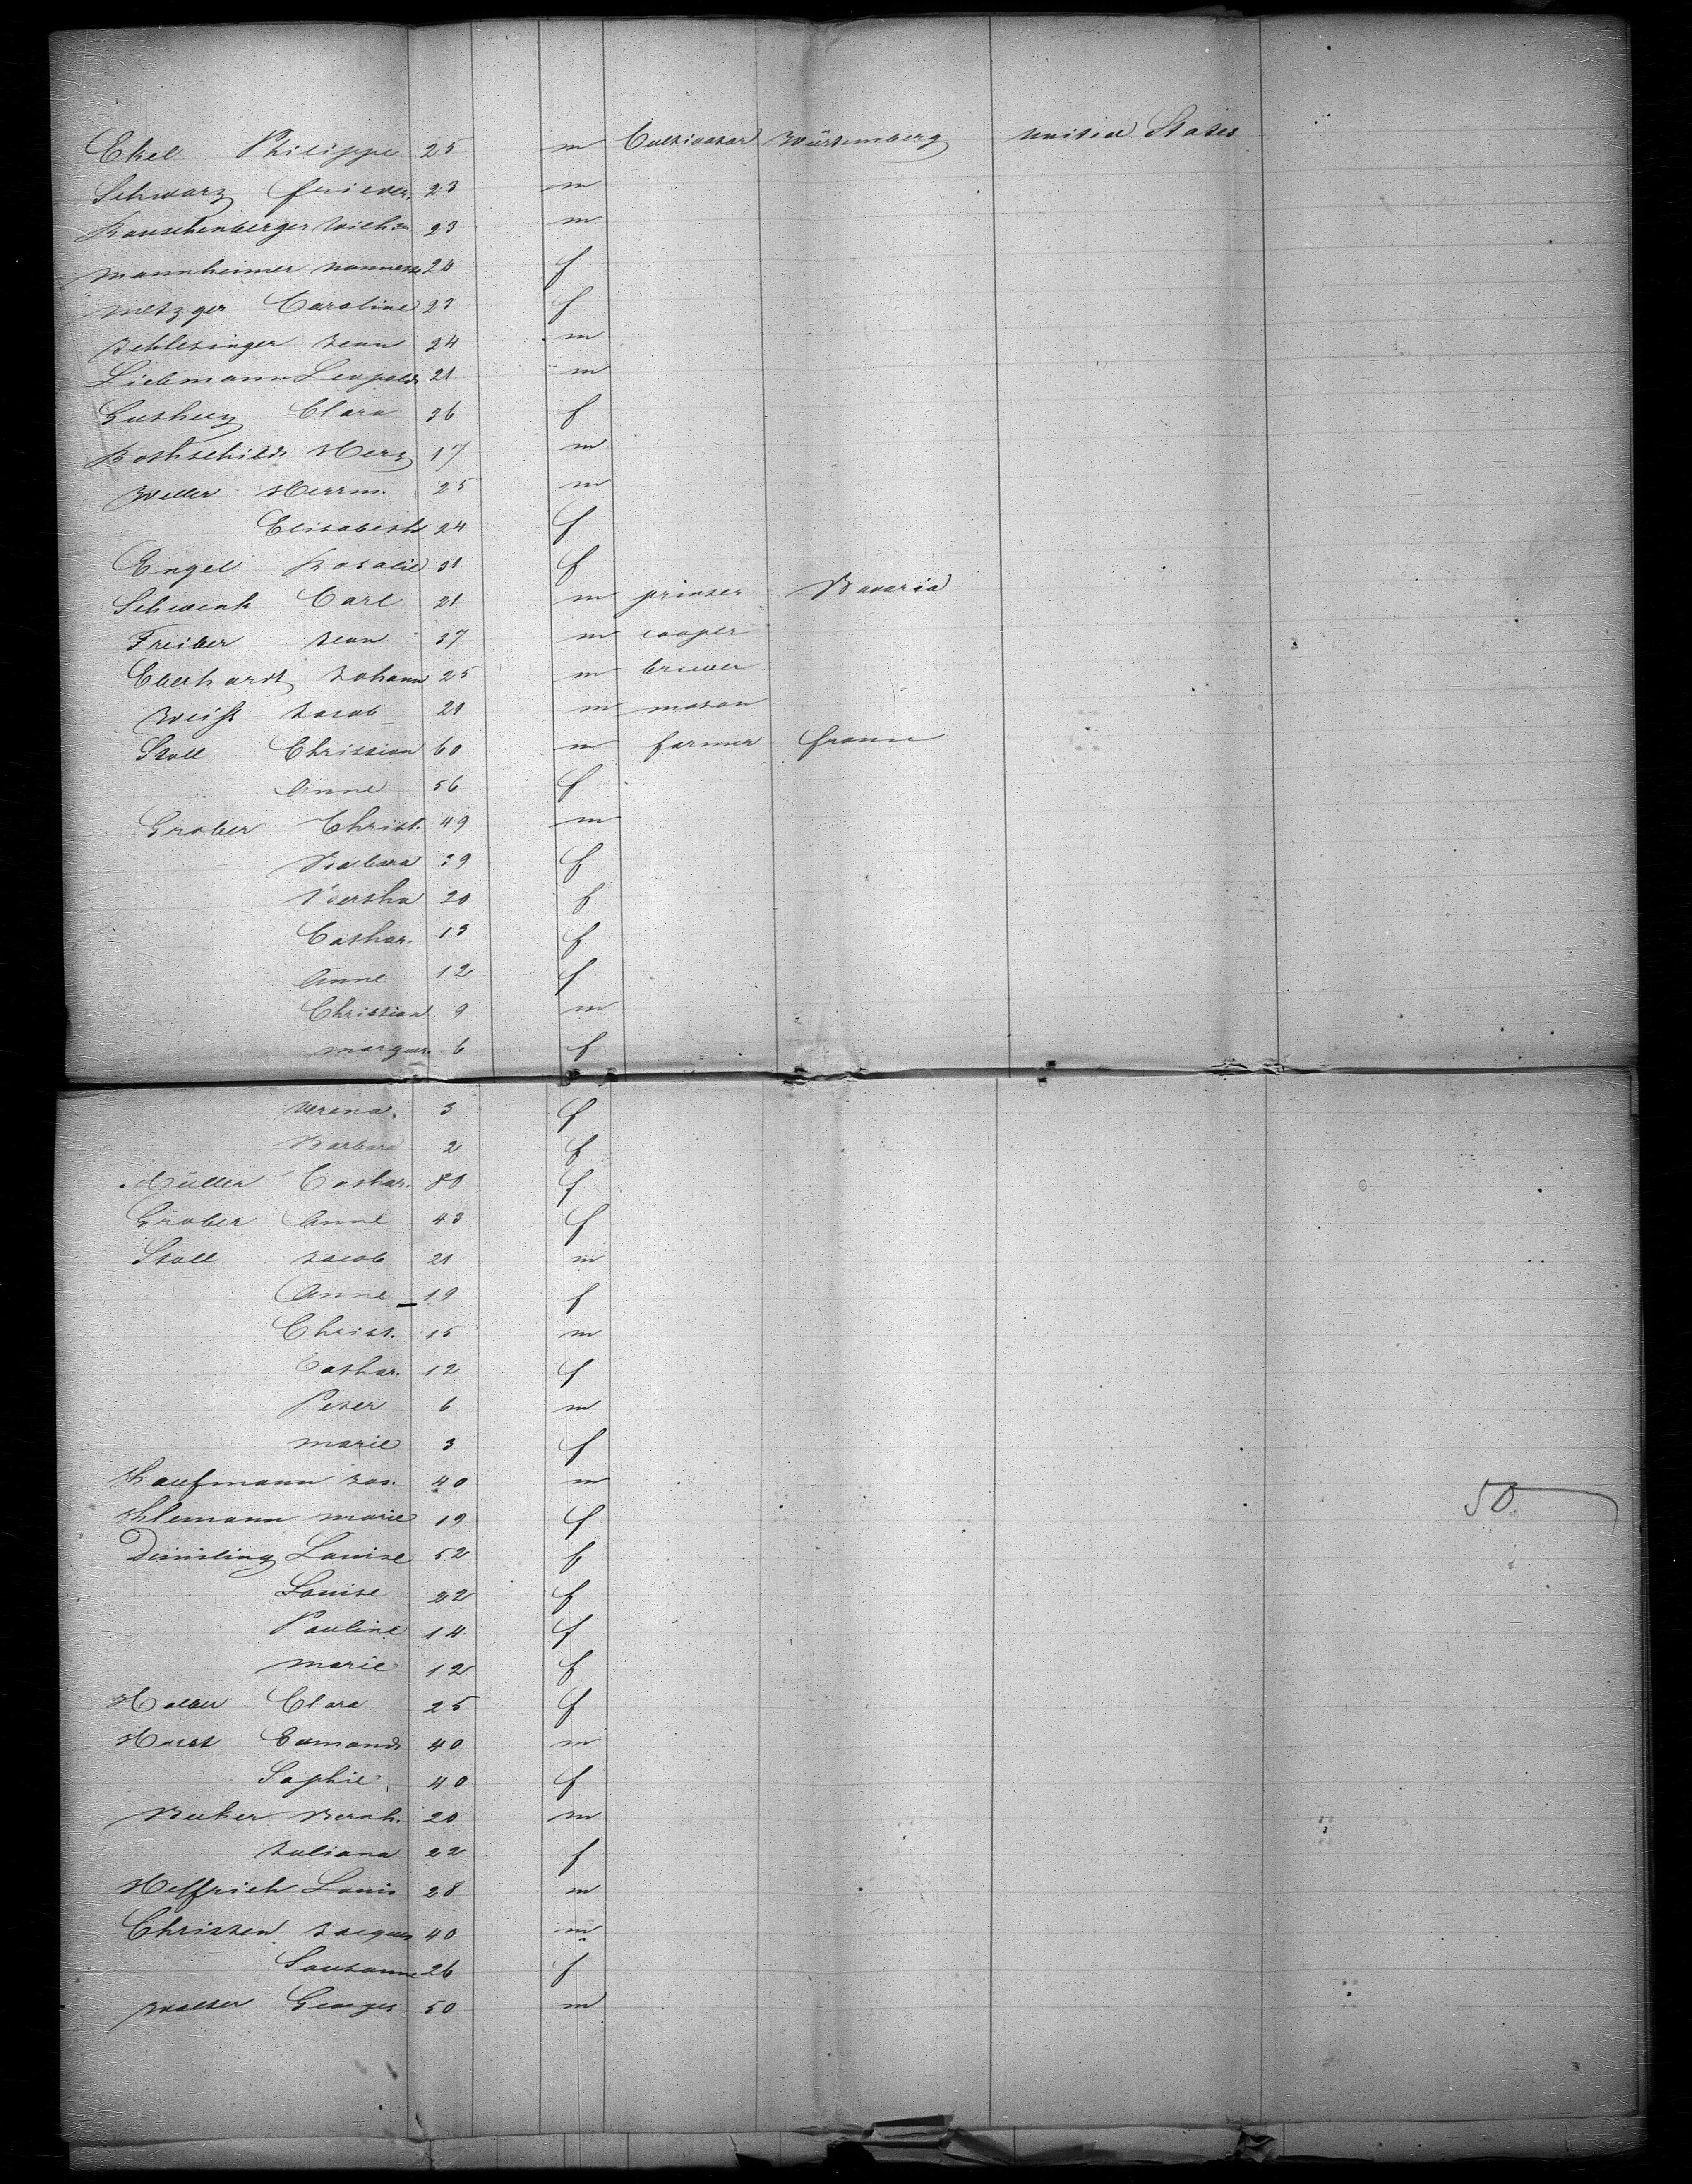 Ekel Philippe 25 m Cultivator Würtemberg United States
Schwarz frieder. 23 m
Rauschenberger Wilh. 23 m
Mannheimer Nannette 20 f
Metzger Caroline 23 f
Schlesinger Jean 24 m
Liebmann Leopold 21 m
Clara 36 f
Rothschild Herz 17 m
Weller Herrm. 25 m
Elisabeth 24 f
Engel Rosalie 31 f
Schwenk Carl 21 m printer Bavaria
Freiber Jean 37 m cooper
Eberhardt Johann 25 m brewer
Weiss Jacob 21 m mason
Stoll Christian 60 m farmer france
Anne 56 f
Graber Christ. 49 m
Barbara 39 f
Bertha 20 f
Cathar. 13 f
Anne 12 f
Christian 9 m
Marguer. 6 f
Verena. 3 f
Barbara 2 f
Müller Cathar. 80 f
Graber Anne 43 f
Stoll Jacob 21 m
Anne 19 f
Christ. 15 m
Cathar. 12 f
Peter 6 m
Marie 3 f
Kaufmann Jos. 40 m
Khlemann Marie 19 f
50.
Louise 52 f
Louise 22 f
Pauline 14 f
Marie 12 f
Clara 25 f
Horst Edmond 40 m
Sophie 40 f
Becker Bernh. 20 m
Juliana 22 f
Helfrich Louis 28 m
Christen Jacques 40 m
Sousanne 26 f
Walter Georges 50 m